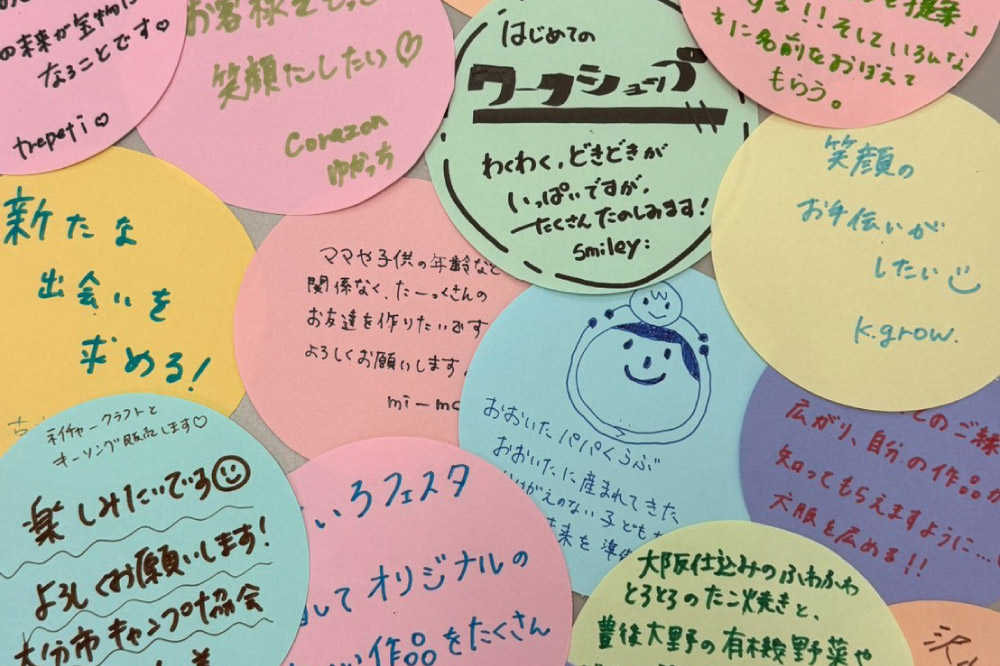 の未来が宝物に
なることです♡
trepeti♡
お客様をもっと
笑顔にしたい♡
Corazon
ゆかっち
はじめての
ワークショップ
わくわく、どきどきが
いっぱいですが、
たくさんたのしみます!
smiley:
を提案」
する!!そしていろんな
ちに名前をおぼえて
もらう。
笑顔の
お手伝いが
したい
k.grow.
新たな
出会いを
求める!
ママや子供の年齢など
関係なく、たーっくさんの
お友達を作りたいです
よろしくお願いします。
mi-mo
おおいたパパくらぶ
おおいたに産まれてきた
けがえのない子ども
未来を準
とのご縁
広がり、自分の作品が
知ってもらえますように…
大阪を広める!!
ネイチャークラフトと
キーリング販売します♡
楽しみたいでろ
よろしくお願いします!
大分市キャンプ協会
いろフェスタ
してオリジナルの
い作品をたくさん
大阪仕込みのふわふわ
とろとろのたこ焼きと、
豊後大野の有機野菜や
沢